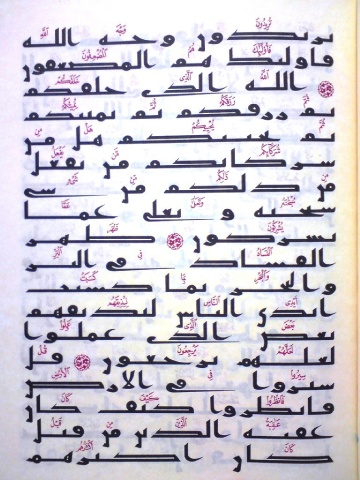 تريدون وجه الله
فاولئك هم المضعفون
الله الذي خلقكم
ثم رزقكم ثم يميتكم
ثم يحييكم هل من
شركائكم من يفعل
من ذلكم من شيء
سبحنه وتعلى عما
يشركون ظهر
الفساد في البر
والبحر بما كسبت
ايدي الناس ليذيقهم
بعض الذي عملوا
لعلهم يرجعون قل
سيروا في الارض
فانظروا كيف كان
عقبة الذين من قبل
كان اكثرهم